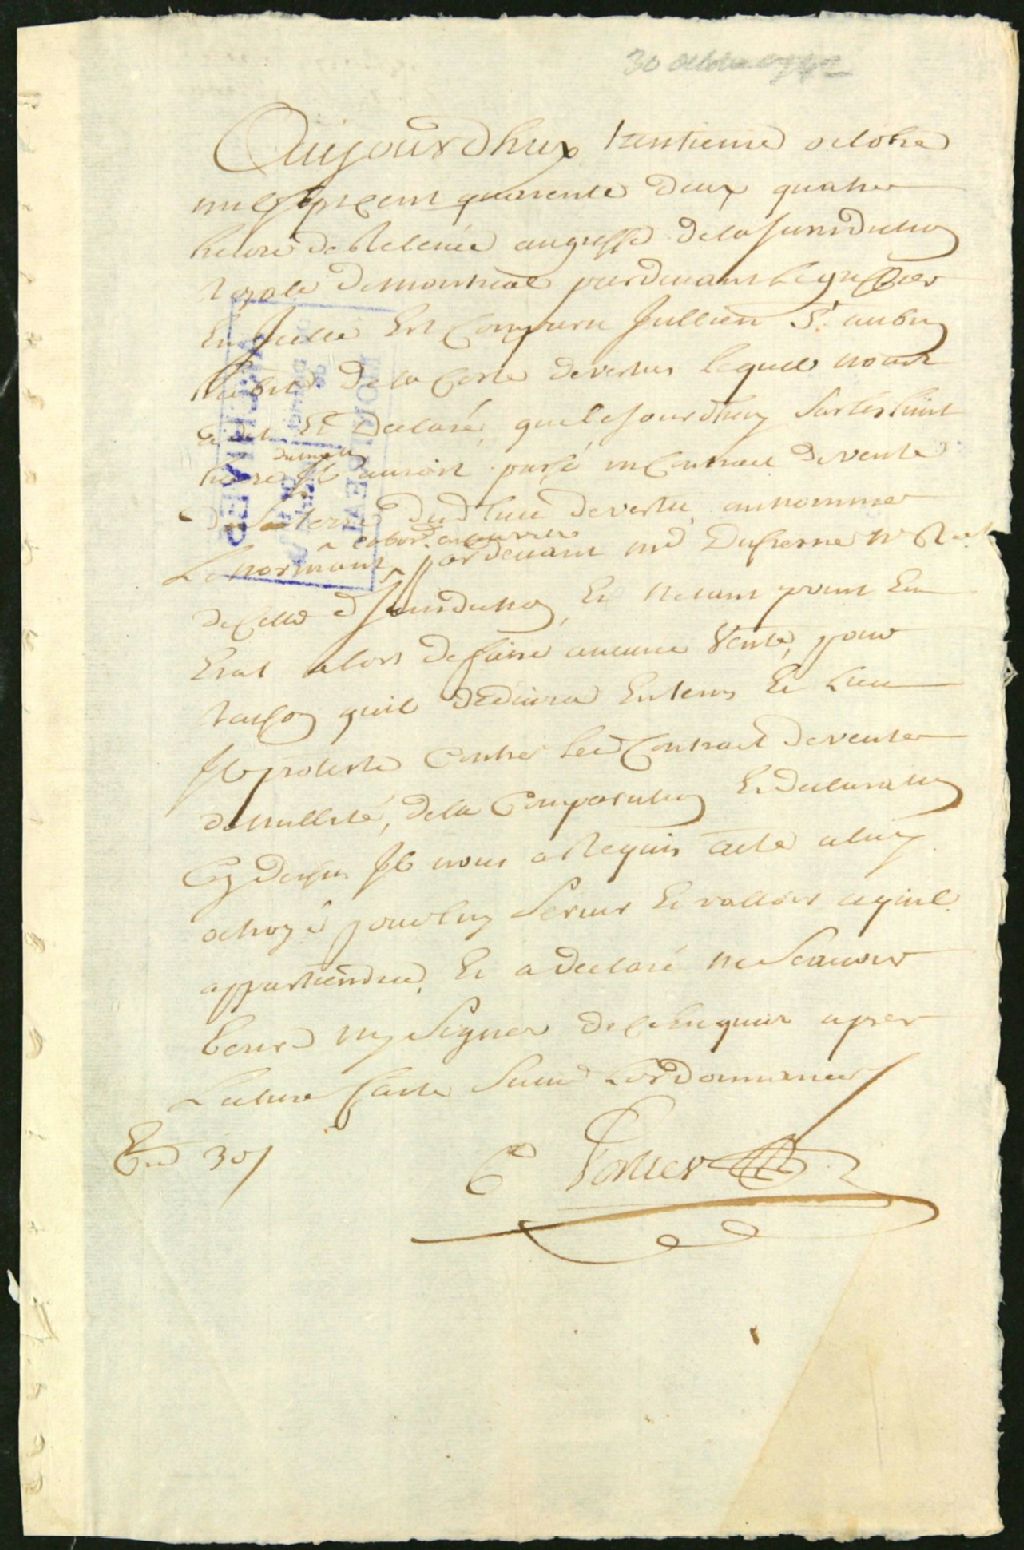 30 octobre 1742
Aujourdhuy trentieme octobre
mil sept cent quarente deux quatre
heure de Relevée au greffe de la Jurisdiction
Royale de montreal pardevant le greffier
En Jcelle Est Comparu Jullien St. aubin
habitt. de la Coste de vertus lequel nous a
dit Et Declaré, que le Jourdhuy sur les huit
heure du matin Jl auroit passé un Contract de vente
De sa terre dud. lieu de vertu, au nommé
Le normant, pardevant me. Dufresne Nre. Royal
de cette d. Jurisdiction, Et Netant point En
Etat alors de faire aucune Vente, pour
raison quil dedeuira En tems Et Lieu
Jl proteste Contre led. Contract de vente
de nullité, de la Comparution Et declaration
Cy dessus Jl nous a Requis acte a luy
octroyé pour luy servir Et valloir ce quil
appartiendra, Et a declaré ne scauoir
Ecrire ny signer de ce Enquis apres
Lecture faite suivt. Lordonnance
30s
C Porlier
ARCHIVES
MONTREAL